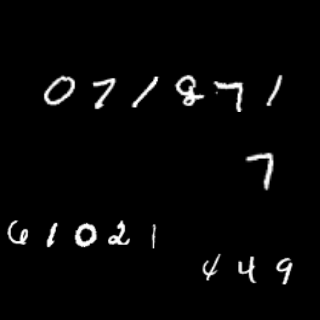 071871
7
61021
449